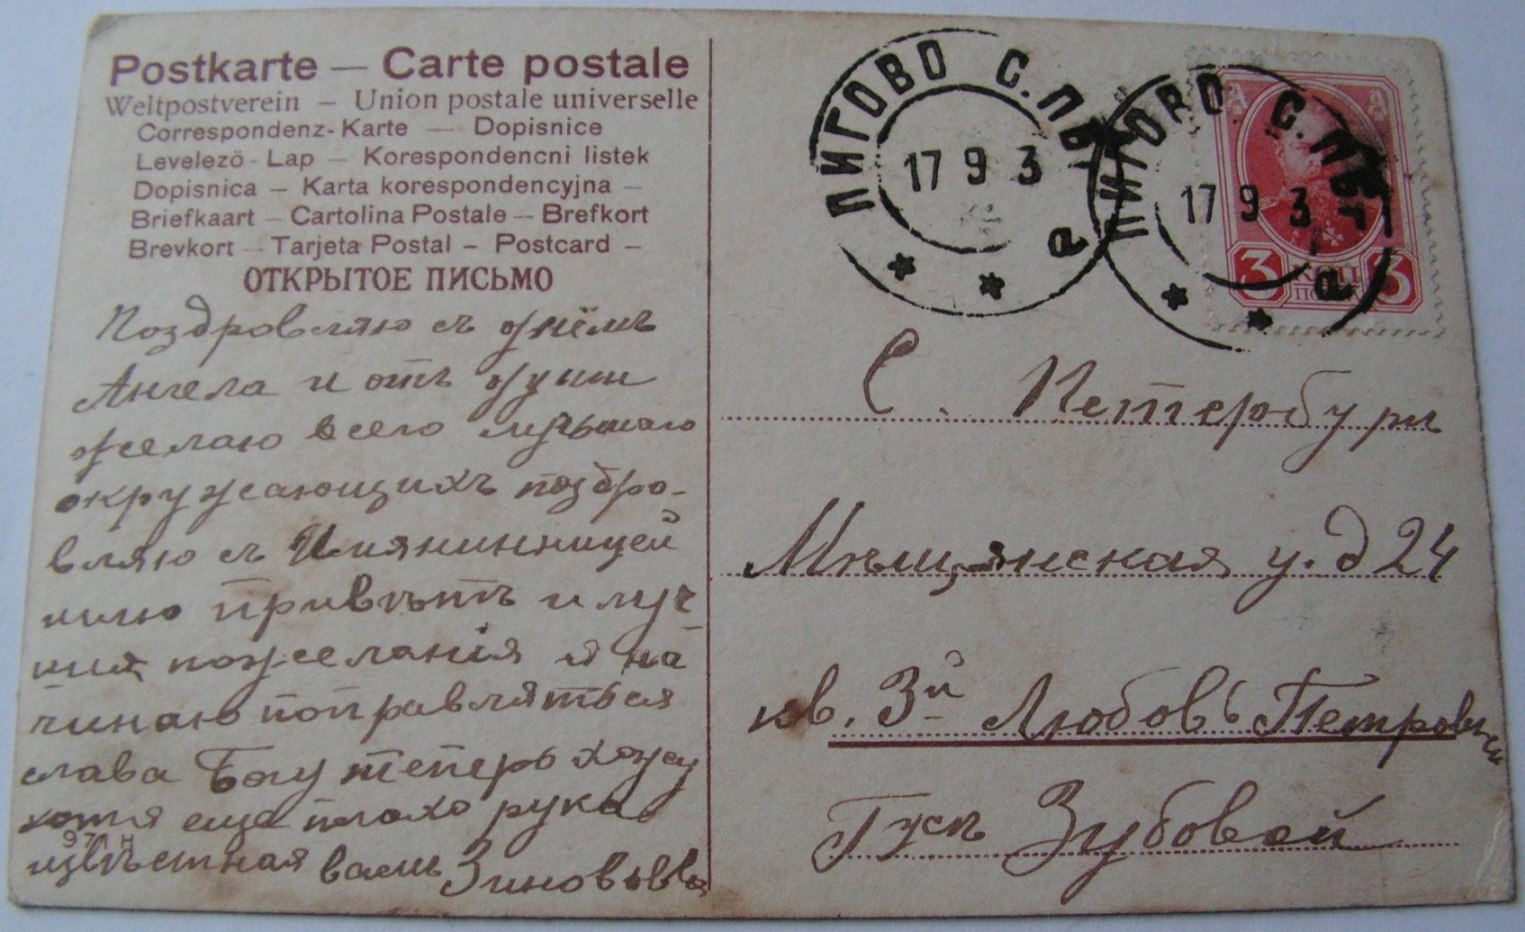 Postkarte — Carte postale
Weltpostverein — Union postale universelle
Correspondenz-Karte — Dopisnice
Levelező-Lap — Korespondencni listek
Dopisnica — Karta korespondencyjna —
Briefkaart — Cartolina Postale — Brefkort
Brevkort — Tarjeta Postal — Postcard —
ОТКРЫТОЕ ПИСЬМО
Поздровляю съ днёмъ
Ангела и отъ души
желаю всего
окружающихъ поздро-
вляю съ Имянинницей
шлю привѣтъ и луч-
шия пожелания я на
чинаю поправляться
слава Богу теперь хожу
хотя еще плохо рука
извѣстная вамъ
971 Н
ЛИГОВО С.ПБ.
17 9 3
а
ЛИГОВО С.ПБГ.
17 9 3
а
3 КОП 3
С. Петербург
Мѣщянская у. д 24
кв. 3й Любовь Петровны
Гжѣ Зубовой